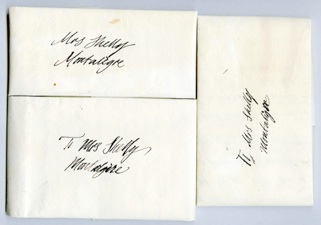 Mrs Shelly
Montalegre
To Mrs Shelly
Montalegre
To Mrs Shelly
Montalegre